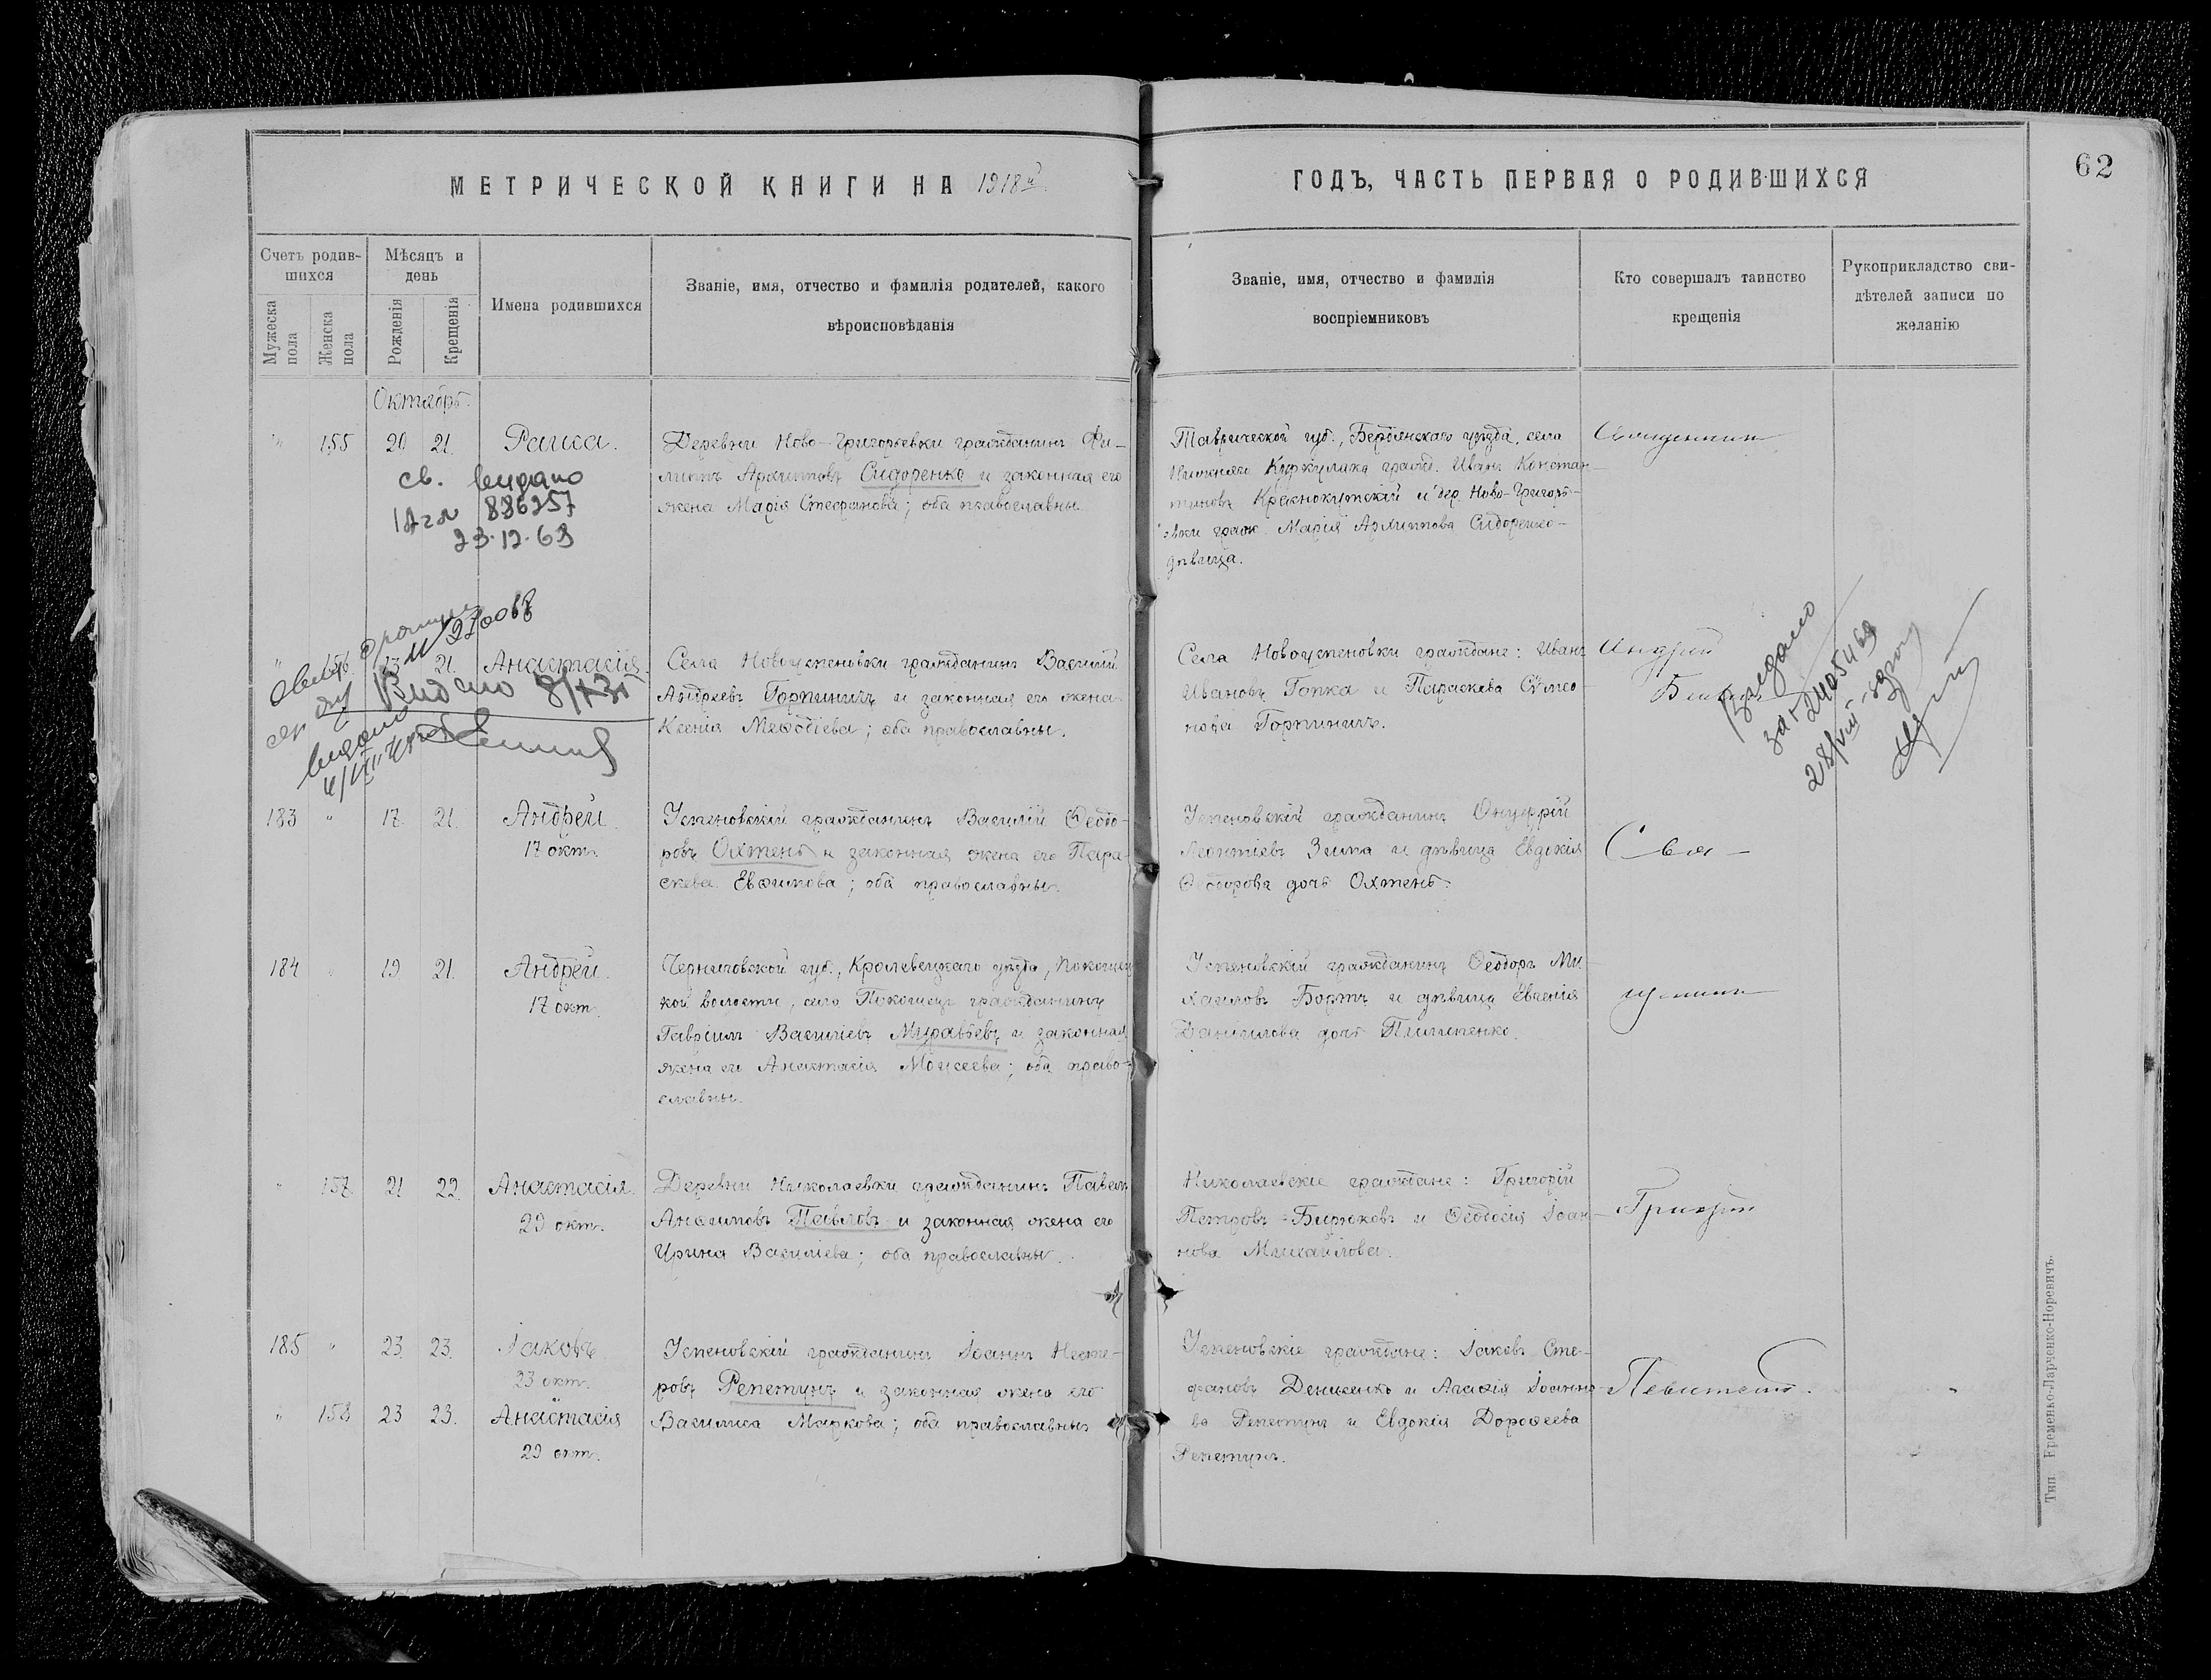 62
МЕТРИЧЕСКОЙ КНИГИ НА 1918й
ГОДЪ, ЧАСТЬ ПЕРВАЯ О РОДИВШИХСЯ
Счетъ родив-
шихся
Мужеска
пола
Женска
пола
Мѣсяцъ и
день
Рожденія
Крещенія
Имена родившихся
Званіе, имя, отчество и фамилія родителей, какого
вѣроисповѣданія
Званіе, имя, отчество и фамилія
воспріемниковъ
Кто совершалъ таинство
крещенія
Рукоприкладство сви-
дѣтелей записи по
желанію
Октябрь.
" 155 20 21. Раиса.
Деревни Ново-Григорьевки гражданинъ Фи-
липпъ Архиповъ Сидоренко и законная его
жена Марія Стефанова; оба православны.
Таврической губ., Бердянскаго уѣзда, села
Нижняго Куркулака гражд. Иванъ Констан-
тиновъ Краснокутскій и дер. Ново-Григорь-
евки граж. Марія Архиппова Сидоренко-
дѣвица.
Священникъ
св. выдано
886257
23.12.63
" 156 13 21 Анастасія.
Села Новоуспеновки гражданинъ Василій
Андреевъ Горпиничъ и законная его жена
Ксенія Меѳодіева; оба православны.
Села Новоуспеновки граждане: Иванъ
Ивановъ Гопка и Параскева Сѵмео-
нова Горпиничъ.
Андрей
№ 270068
Видано
видано
183 " 17 21. Андрей.
17 окт.
Успеновскій гражданинъ Василій Ѳеодо-
ровъ Охтень и законная жена его Пара-
скева Евѳимова; оба православны.
Успеновскій гражданинъ Онуфрій
Леонтіевъ Зима и дѣвица Евдокія
Ѳеодорова дочь Охтень.
Свя-
184 " 19 21. Андрей.
17 окт.
Черниговской губ., Кролевецкаго уѣзда, Покошиц-
кой волости, села Покошичъ гражданинъ
Гавріилъ Василіевъ Муравьевъ и законная
жена его Анастасія Моисеева; оба право-
славны.
Успеновскій гражданинъ Ѳеодоръ Ми-
хаиловъ Бортъ и дѣвица Евгенія
Даніилова дочь Пилипенко.
щенникъ
" 157 21 22. Анастасія.
29 окт.
Деревни Николаевки гражданинъ Павелъ
Анѳимовъ Павловъ и законная жена его
Ирина Василіева; оба православны.
Николаевскіе граждане: Григорій
Петровъ Бирюковъ и Ѳеодосія Іоан-
нова Михайлова.
Григорій
185 " 23. 23. Іаковъ.
23 окт.
" 158 23 23. Анастасія
29 окт.
Успеновскій гражданинъ Іоаннъ Несте-
ровъ Репетунъ и законная жена его
Василиса Маркова; оба православны
Успеновскіе граждане: Іаковъ Сте-
фановъ Денисенко и Агаѳія Іоанно-
ва Репетунъ и Евдокія Дороѳеева
Репетунъ.
Тип. Еременко-Ларченко-Норевичъ.